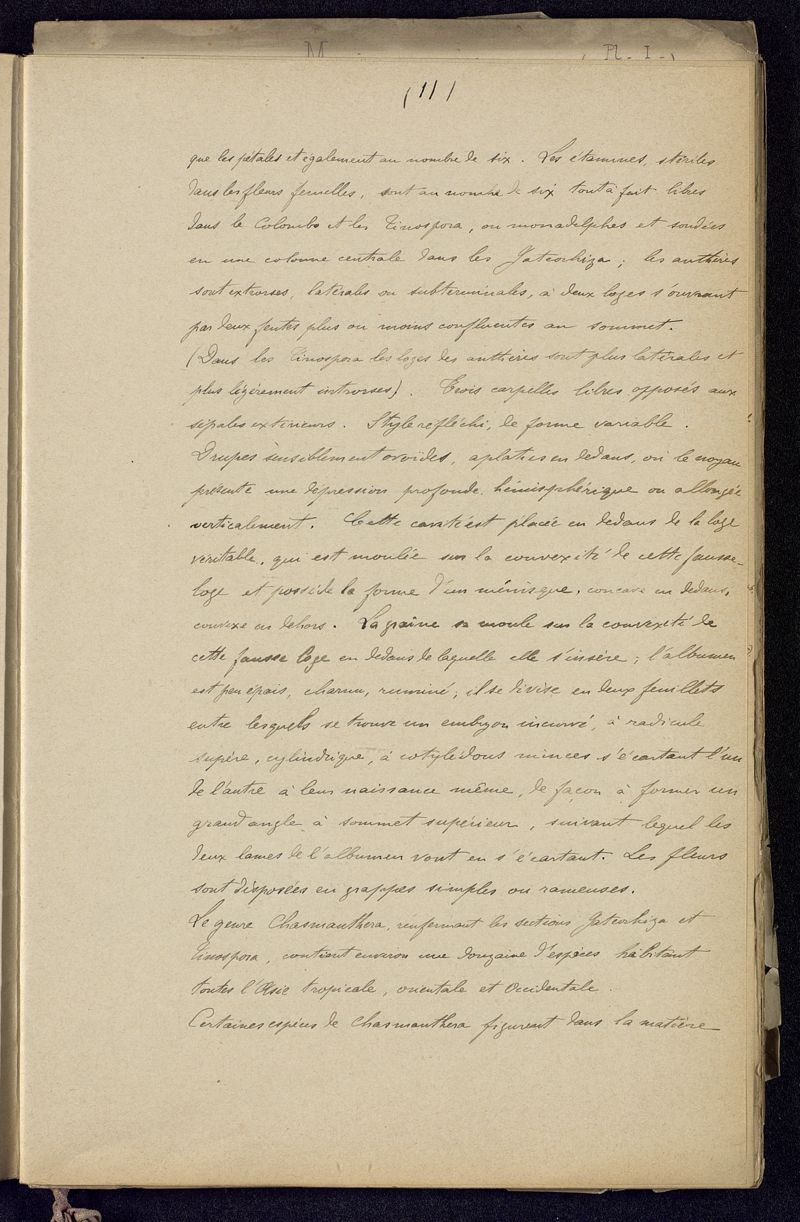 M
(Pl. I.)
(11)
que les pétales et également au nombre de six. Les étamines, stériles
dans les fleurs femelles, sont au nombre de six tout à fait libres
dans le Colombo et les Tinospora, ou monadelphes et soudées
en une colonne centrale dans les Jateorhiza ; les anthères
sont extrorses, latérales ou subterminales, à deux loges s'ouvrant
par deux fentes plus ou moins confluentes au sommet.
(Dans les Tinospora les loges des anthères sont plus latérales et
plus légèrement introrses). Trois carpelles libres opposés aux
sépales extérieurs. Style réfléchi, de forme variable.
Drupes sensiblement ovoïdes, aplaties en dedans, où le noyau
présente une dépression profonde, hémisphérique ou allongée
verticalement. Cette cavité est placée en dedans de la loge
véritable, qui est moulée sur la convexité de cette fausse-
loge et possède la forme d'un ménisque, concave en dedans,
convexe en dehors. La graine se moule sur la convexité de
cette fausse loge en dedans de laquelle elle s'insère ; l'albumen
est peu épais, charnu, ruminé ; il se divise en deux feuillets
entre lesquels se trouve un embryon incurvé, à radicule
supère, cylindrique, à cotylédons minces s'écartant l'un
de l'autre à leur naissance même, de façon à former un
grand angle à sommet supérieur, suivant lequel les
deux lames de l'albumen vont en s'écartant. Les fleurs
sont disposées en grappes simples ou rameuses.
Le genre Chasmanthera, renfermant les sections Jateorhiza et
Tinospora, contient environ une douzaine d'espèces habitant
toutes l'Asie tropicale, orientale et Occidentale.
Certaines espèces de Chasmanthera figurent dans la matière